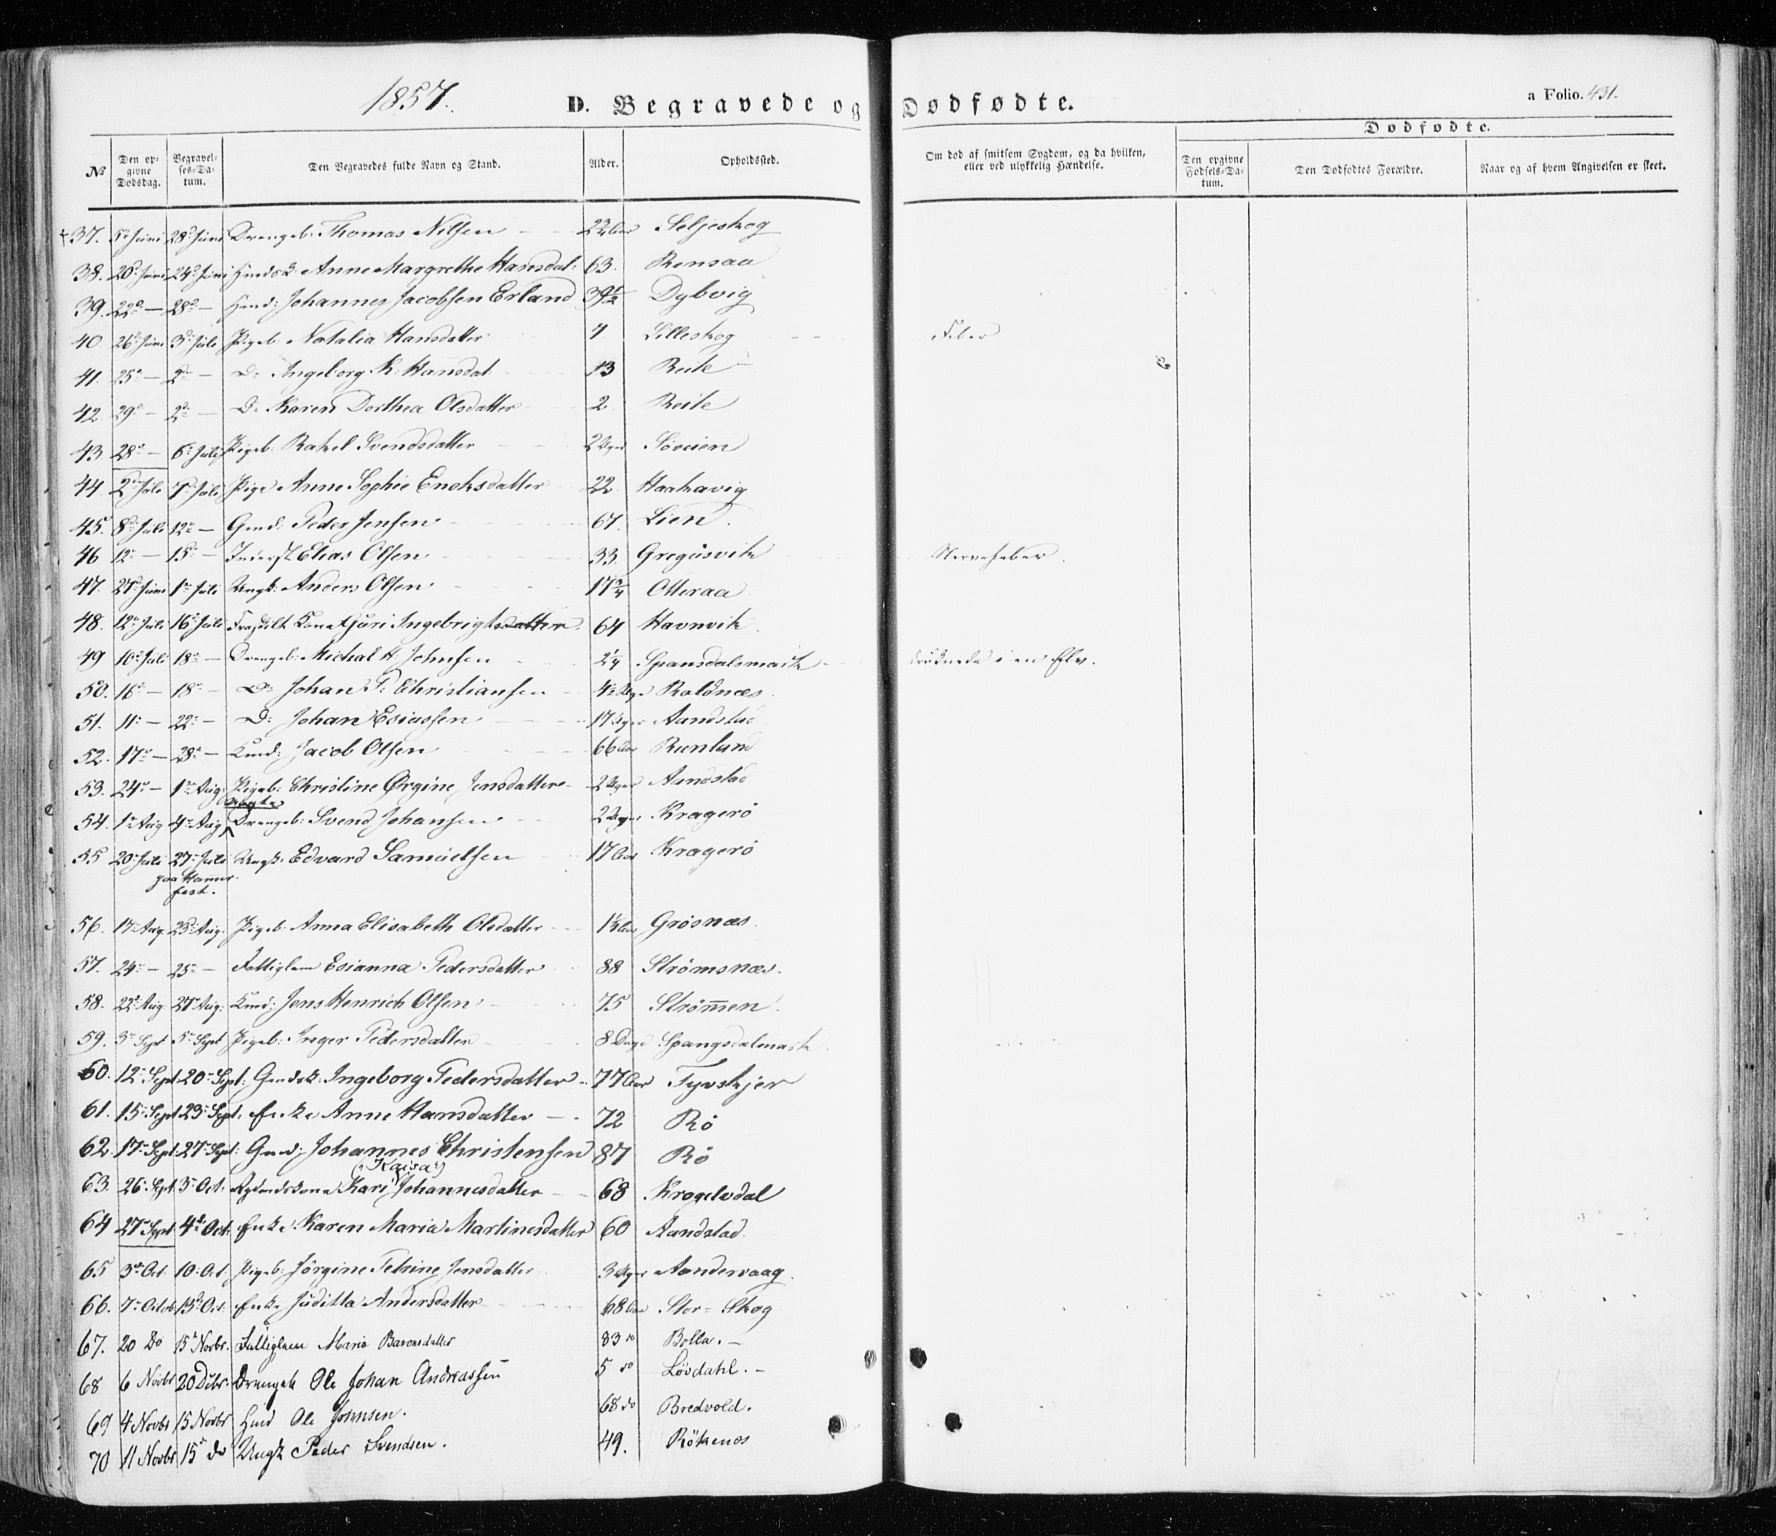 1857.
D. Begravede og Dødfødte.
a Folio. 431.
Dødfødte.
No Den opgivne Dødsdag. Begravelses-Datum. Den Begravedes fulde Navn og Stand. Alder. Opholdssted. Om død af smitsom Sygdom, og da hvilken, eller ved ulykkelig Hændelse. Den opgivne Fødsels-Datum. Den Dødfødtes Forældre. Naar og af hvem Angivelsen er skeet.
37. 5 Juni 28 Juni Drengeb: Thomas Nilsen 2 3/4 Aar Seljeskog
38. 20 Juni 24 Juni Anne Margrethe Hansdat: 63. Rensaa
39. 22 — 28 — Johannes Jacobsen Erland 39 1/2 Dybvig
40 26 Juni 3 Juli Pigeb: Natalia Hansdatter 7 Lilleskog Feber
41. 25 — 2 — D: Ingeborg K: Hansdat 13 Reite
42 29 — 2 — D: Karen Dorthea Olsdatter 2 Reite
43 28 — 6 Juli Pigeb: Rakel Svendsdatter 2 Uger
44 2 Juli 7 Juli Pige Anne Sophie Enoksdatter 22 Haakavig
45. 8 Juli 12 — Gmd: Peder Jensen 67. Lien.
46 12 — 15 — Inderst Elias Olsen 33. Gregusvik Nervefeber.
47. 27 Juni 1 Juli Ungk: Anders Olsen 17 3/4 Otteraa
48. 12 Juli 16 Juli Fraskilt Kone Guri Ingebrigtsdatter 64 Havnvik.
49 10 Juli 18 — Drengeb: Michal H Johnsen 2 1/4 Spansdalsmark druknede i en Elv.
50. 16 — 18 — D: Johan P: Christiansen Uger Roldnæs.
51. 11 — 22 — D: Johan Esiassen 17 Uger Aandstad
52. 17 — 28 — Jacob Olsen 66 Aar
53. 24 — 1 Aug: Pigeb: Christine Ørgine Jensdatter 2 Uger Aandstad
54. 1 Aug 4 Aug uægte Drengeb: Svend Johansen 2 Uger Kragerö
55 20 Juli 27 Juli paa Hammerfest. Ungk: Edvard Samuelsen 17 Aar Kragerö
56. 17 Aug 23 Aug: Pigeb: Anna Elisabeth Olsdatter Grøsnæs.
57. 24 — 25 — Fattiglem Esianna Pedersdatter 88 Strømsnæs.
58. 22 Aug 27 Aug: Jens Henrich Olsen 75 Strömmen.
59. 3 Sept 5 Sept Pigeb: Inger Pedersdatter 8 Dage Spangsdalmark.
60. 12 Sept 20 Sept: Ingeborg Pedersdatter 77 Aar Tyvskjer
61. 15 Sept 23 Sept: Enke Anne Hansdatter 72 Rö
62. 17 Sept: 27 Sept: Gmd: Johannes Christensen 87 Rö
63. 26 Sept 3 Oct. Kari ("Kaisa") Johannesdatter 68 Krogelvdal
64 27 Sept 4 Oct: Enke Karen Maria Martinesdatter 60 Aandstad.
65 3 Oct: 10 Oct. Pigeb: Jörgine Petrine Jensdatter 3 Uger Aandervaag.
66. 7 Octob 15 Oct. Enke Juditta Andersdatter 68 Aar Stor-Skog
67. 20 Do 15 Novbr. Fattiglem Maria Baronsdatter 83 do Bolla. —
68 6 Novbr 20 Dcbr. Drengeb Ole Johan Andreassen 5 do Løvdahl. —
69 4 Novbr 15 Novbr Ole Johnsen. 68 do Bredvold.
70 11 Novbr 15 do Ungk Peder Svendsen. 49. Rökenes